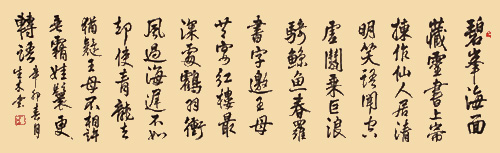 碧峯海面
藏靈書上帝
揀作仙人居清
明笑語聞空
虛鬪乘巨浪
騎鯨魚春羅
書字邀王母
共宴紅樓最
深處鶴羽衝
風過海遲不如
却使青龍去
猶疑王母不相許
垂霧娃鬟更
轉語
辛卯春月